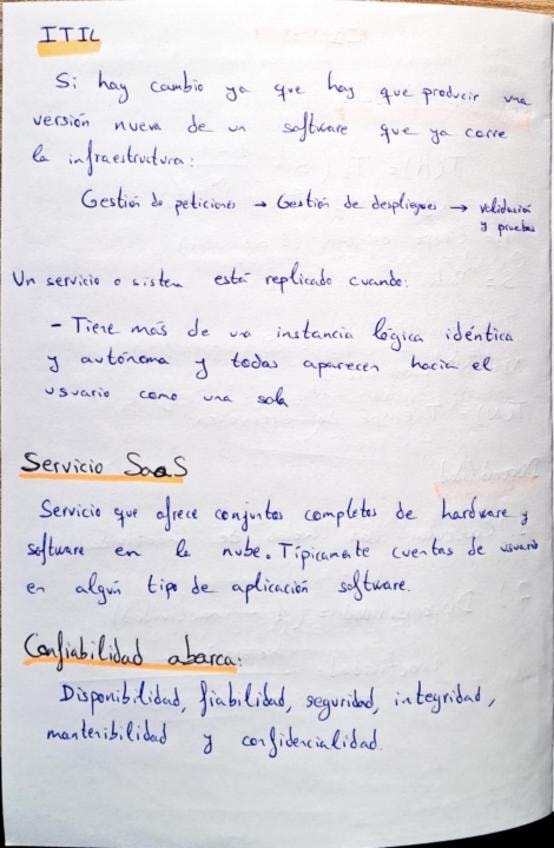 ITIL
Si hay cambio ya que hay que producir una
versión nueva de un software que ya corre
la infraestructura:
Gestión de peticiones → Gestión de despliegues → validación
y pruebas
Un servicio o sistema está replicado cuando:
- Tiene más de una instancia lógica idéntica
y autónoma y todas aparecen hacia el
usuario como una sola
Servicio SaaS
Servicio que ofrece conjuntos completos de hardware y
software en la nube. Típicamente cuentas de usuario
en algún tipo de aplicación software.
Confiabilidad abarca:
Disponibilidad, fiabilidad, seguridad, integridad,
mantenibilidad y confidencialidad.